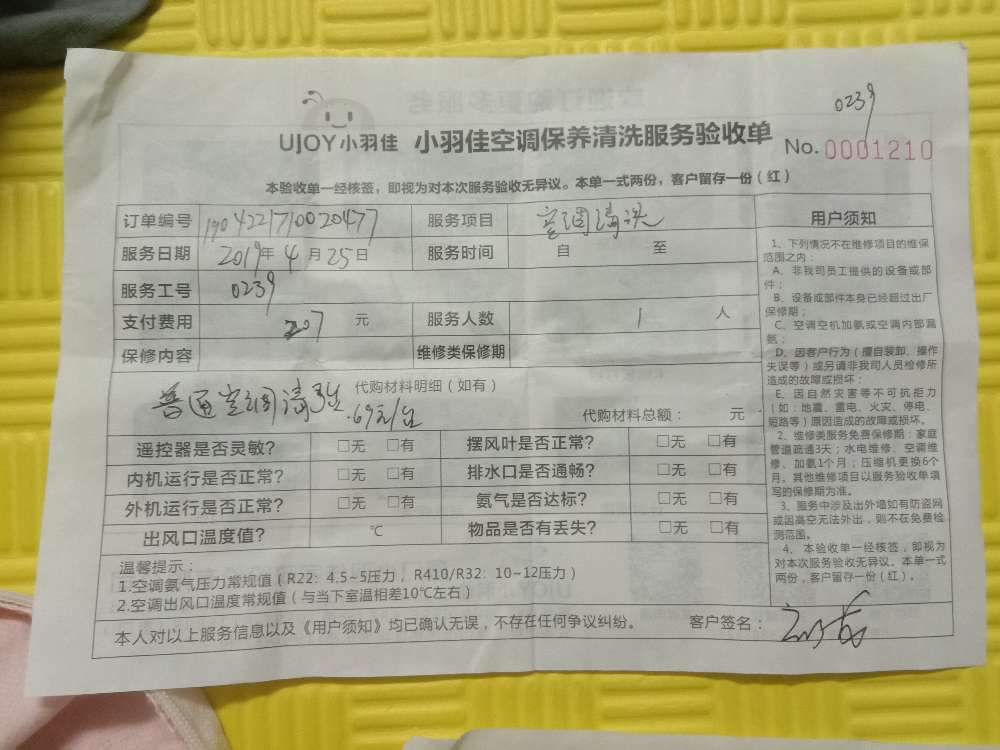 0239
UJOY小羽佳 小羽佳空调保养清洗服务验收单 No.0001210
本验收单一经核签，即视为对本次服务验收无异议。本单一式两份，客户留存一份（红）
订单编号 服务项目 空调清洗
服务日期 2019年4月25日 服务时间 自 至
服务工号 0239
支付费用 207 元 服务人数 1 人
保修内容 维修类保修期
代购材料明细（如有）
普通空调清洗 69元/台
代购材料总额： 元
遥控器是否灵敏？ □无 □有 摆风叶是否正常？ □无 □有
内机运行是否正常？ □无 □有 排水口是否通畅？ □无 □有
外机运行是否正常？ □无 □有 氨气是否达标？ □无 □有
出风口温度值？ ℃ 物品是否有丢失？ □无 □有
温馨提示：
1.空调氨气压力常规值（R22：4.5~5压力，R410/R32：10~12压力）
2.空调出风口温度常规值（与当下室温相差10℃左右）
本人对以上服务信息以及《用户须知》均已确认无误，不存在任何争议纠纷。 客户签名：
用户须知
1、下列情况不在维修项目的维保
范围之内：
A、非我司员工提供的设备或部
件；
B、设备或部件本身已经超过出厂
保修期；
C、空调空机加氨或空调内部漏
氨；
D、因客户行为（擅自装卸、操作
失误等）或另请非我司人员检修所
造成的故障或损坏；
E、因自然灾害等不可抗拒力
（如：地震、雷电、火灾、停电、
短路等）原因造成的故障或损坏。
2、维修类服务免费保修期：家庭
管道疏通3天；水电维修、空调维
修、加氨1个月；压缩机更换6个
月。其他维修项目以服务验收单填
写的保修期为准。
3、服务中涉及出外墙如有防盗网
或因高空无法外出，则不在免费检
测范围。
4、本验收单一经核签，即视为
对本次服务验收无异议。本单一式
两份，客户留存一份（红）。